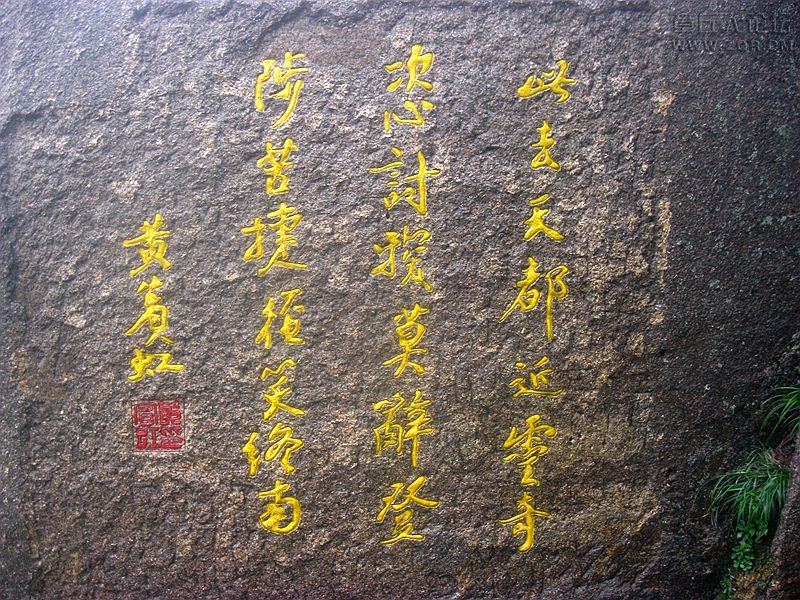 此去天都近靈奇
恣討探莫辭登
陟苦捷徑笑終南
黃賓虹